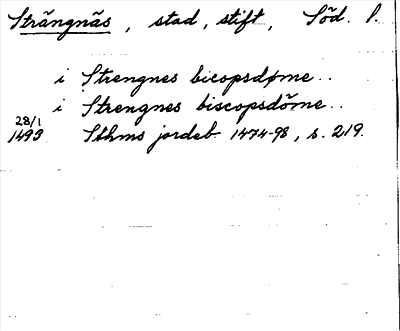 Strängnäs, stad, stift, Söd. l.
i Strengnes bicopsdøme..
i Strengnes biscopsdöme..
28/1
1493 Sthms jordeb. 1474-98, s. 219.